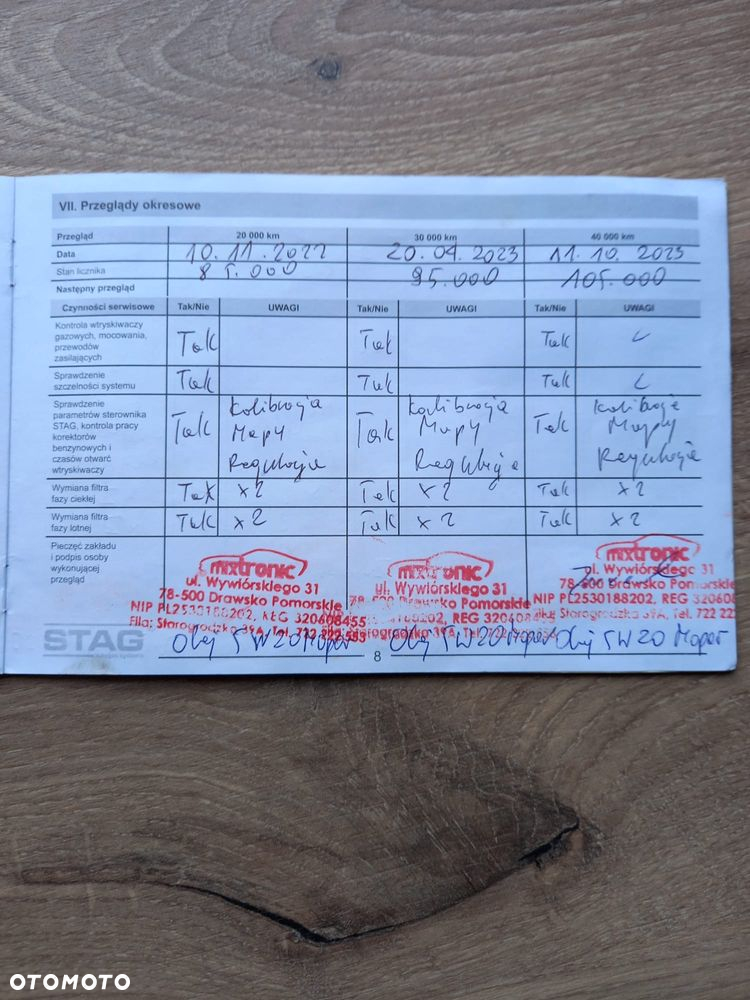 VII. Przeglądy okresowe
Przegląd 20 000 km 30 000 km 40 000 km
Data 10.11.2022 20.04.2023 11.10.2023
Stan licznika 85.000 95.000 105.000
Następny przegląd
Czynności serwisowe Tak/Nie UWAGI Tak/Nie UWAGI Tak/Nie UWAGI
Kontrola wtryskiwaczy
gazowych, mocowania,
przewodów
zasilających
Tak Tak Tak
Sprawdzenie
szczelności systemu
Tak Tak Tak
Sprawdzenie
parametrów sterownika
STAG, kontrola pracy
korektorów
benzynowych i
czasów otwarć
wtryskiwaczy
Tak Kalibracja Tak Kalibracja Tak Kalibracja
Mapy Mapy Mapy
Regulacja Regulacja Regulacja
Wymiana filtra
fazy ciekłej
Tak x2 Tak x2 Tak x2
Wymiana filtra
fazy lotnej
Tak x2 Tak x2 Tak x2
Pieczęć zakładu
i podpis osoby
wykonującej
przegląd
mixtronic
ul. Wywiórskiego 31
78-500 Drawsko Pomorskie
NIP PL2530188202, REG 320608455
Filia: Starogrodzka 39A, Tel. 722 222 553
mixtronic
ul. Wywiórskiego 31
Drawsko Pomorskie
202, REG 320608455
Starogrodzka 39A, Tel. 722
mixtronic
ul. Wywiórskiego 31
78-500 Drawsko Pomorskie
NIP PL2530188202, REG 32060
Filia: Starogrodzka 39A, Tel. 722 22
Olej 5W20 Mopar Olej 5W20 Mopar Olej 5W20 Mopar
STAG
8
OTOMOTO